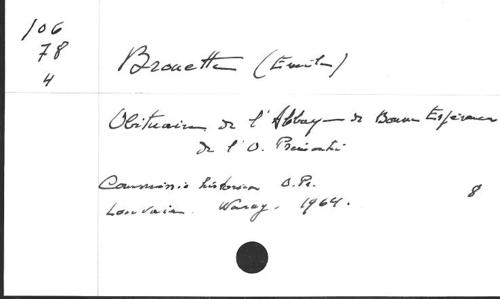 106
78
4
Brouette (Emile)
Obituaire de l'Abbaye de Bonne Espérance
de l'O. Prémontré
Commissio historica O. Pr.
Louvain. Warny. 1964.
8